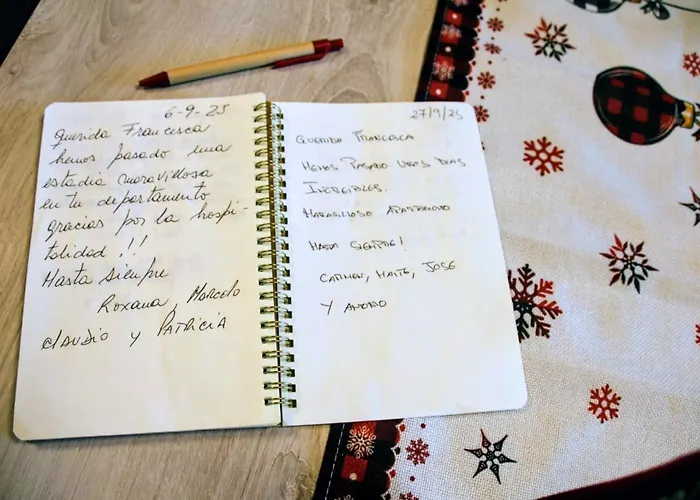 6-9-25
Querida Francesca
hemos pasado una
estadia maravillosa
en tu departamento
gracias por la hospi-
talidad !!
Hasta siempre
Roxana, Marcelo
Claudio y Patricia
27/9/25
QUERIDA FRANCESCA
HEMOS PASADO UNOS DIAS
INCREIBLES.
MARAVILLOSO APARTAMENTO
HASTA SIEMPRE!
CARMEN, MAITE, JOSE
Y